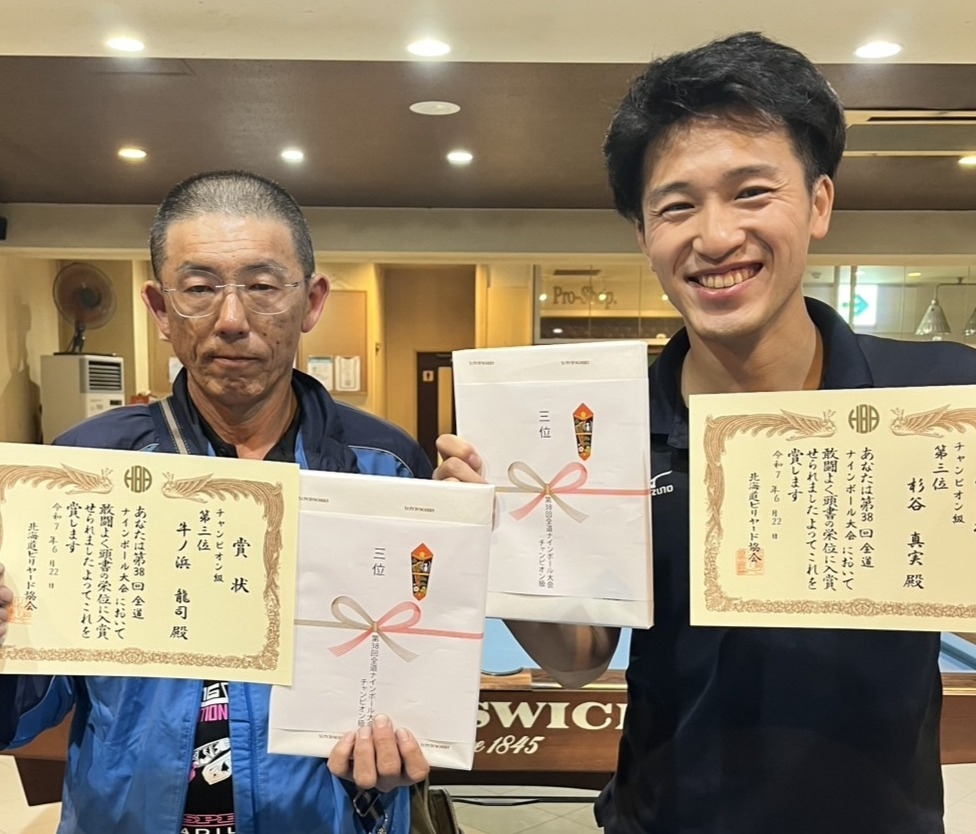 Pro-Shop.
HBA
賞状
チャンピオン級
第三位
牛ノ浜 龍司 殿
あなたは第38回全道
ナインボール大会 において
敢闘よく頭書の栄位に入賞
せられましたよってこれを
賞します
令和7年6月22日
北海道ビリヤード協会
三位
第38回全道ナインボール大会
チャンピオン級
三位
第38回全道ナインボール大会
チャンピオン級
HBA
チャンピオン級
第三位
杉谷 真実 殿
あなたは第38回全道
ナインボール大会 において
敢闘よく頭書の栄位に入賞
せられましたよってこれを
賞します
令和7年6月22日
北海道ビリヤード協会
ZUNO
SWICK
ce 1845
TION